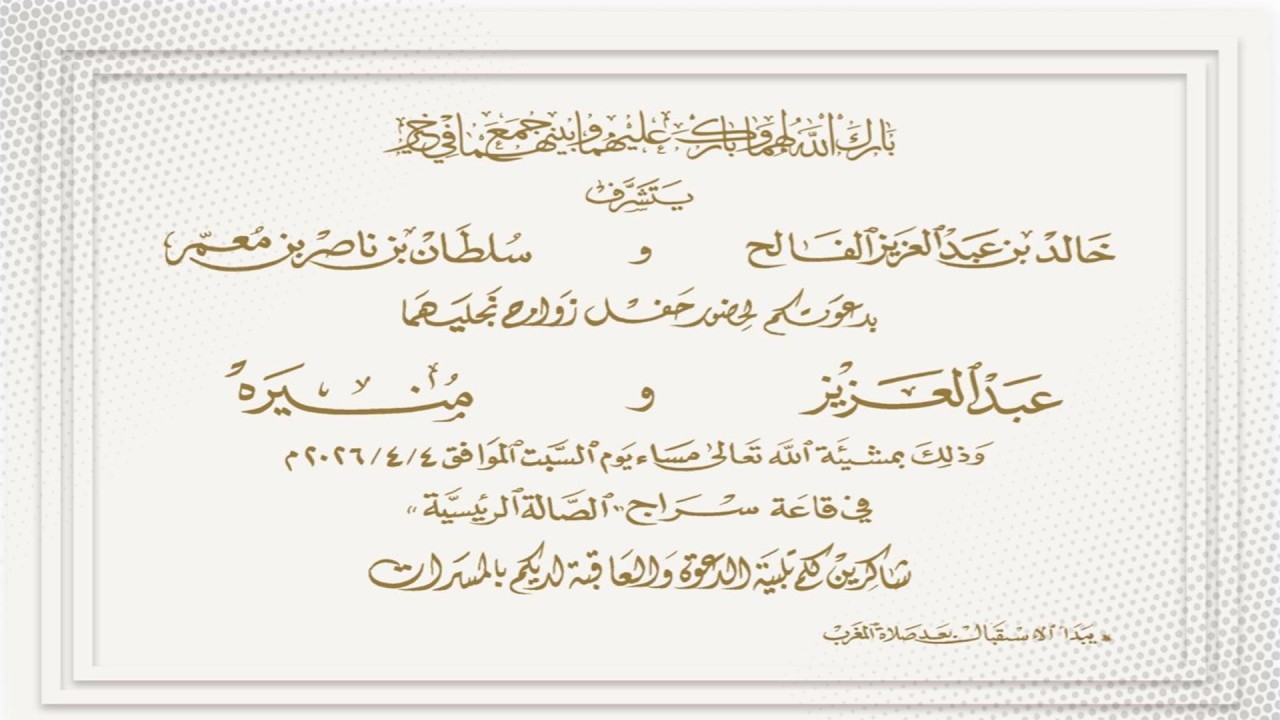 بارك الله لهما وبارك عليهما وجمع بينهما في خير
يتشرف
خالد بن عبدالعزيز الفالح و سلطان بن ناصر بن معمر
بدعوتكم لحضور حفل زواج نجليهما
عبدالعزيز و منيرة
وذلك بمشيئة الله تعالى مساء يوم السبت الموافق ٢٠٢٦/٤/٤م
في قاعة سراج "الصالة الرئيسية"
شاكرين لكم تلبية الدعوة والعاقبة لديكم بالمسرات
* يبدأ الاستقبال بعد صلاة المغرب